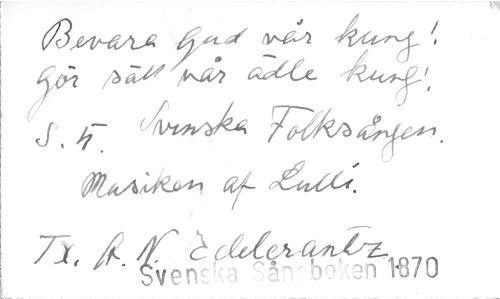 Bevara Gud vår kung!
Gör säll vår ädle kung!
S. k. Svenska Folksången.
Musiken af Lulli.
Tx. A. N. Edelcrantz.
Svenska Sångboken 1870